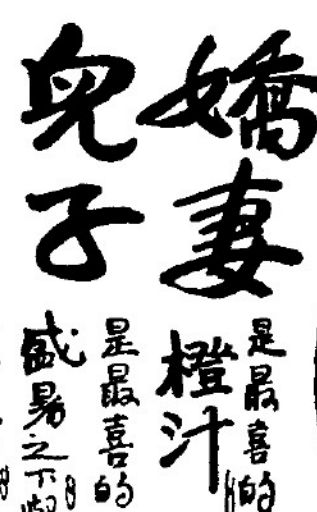 嬌妻
是最喜的
橙汁
兒子
是最喜的
盛暑之下